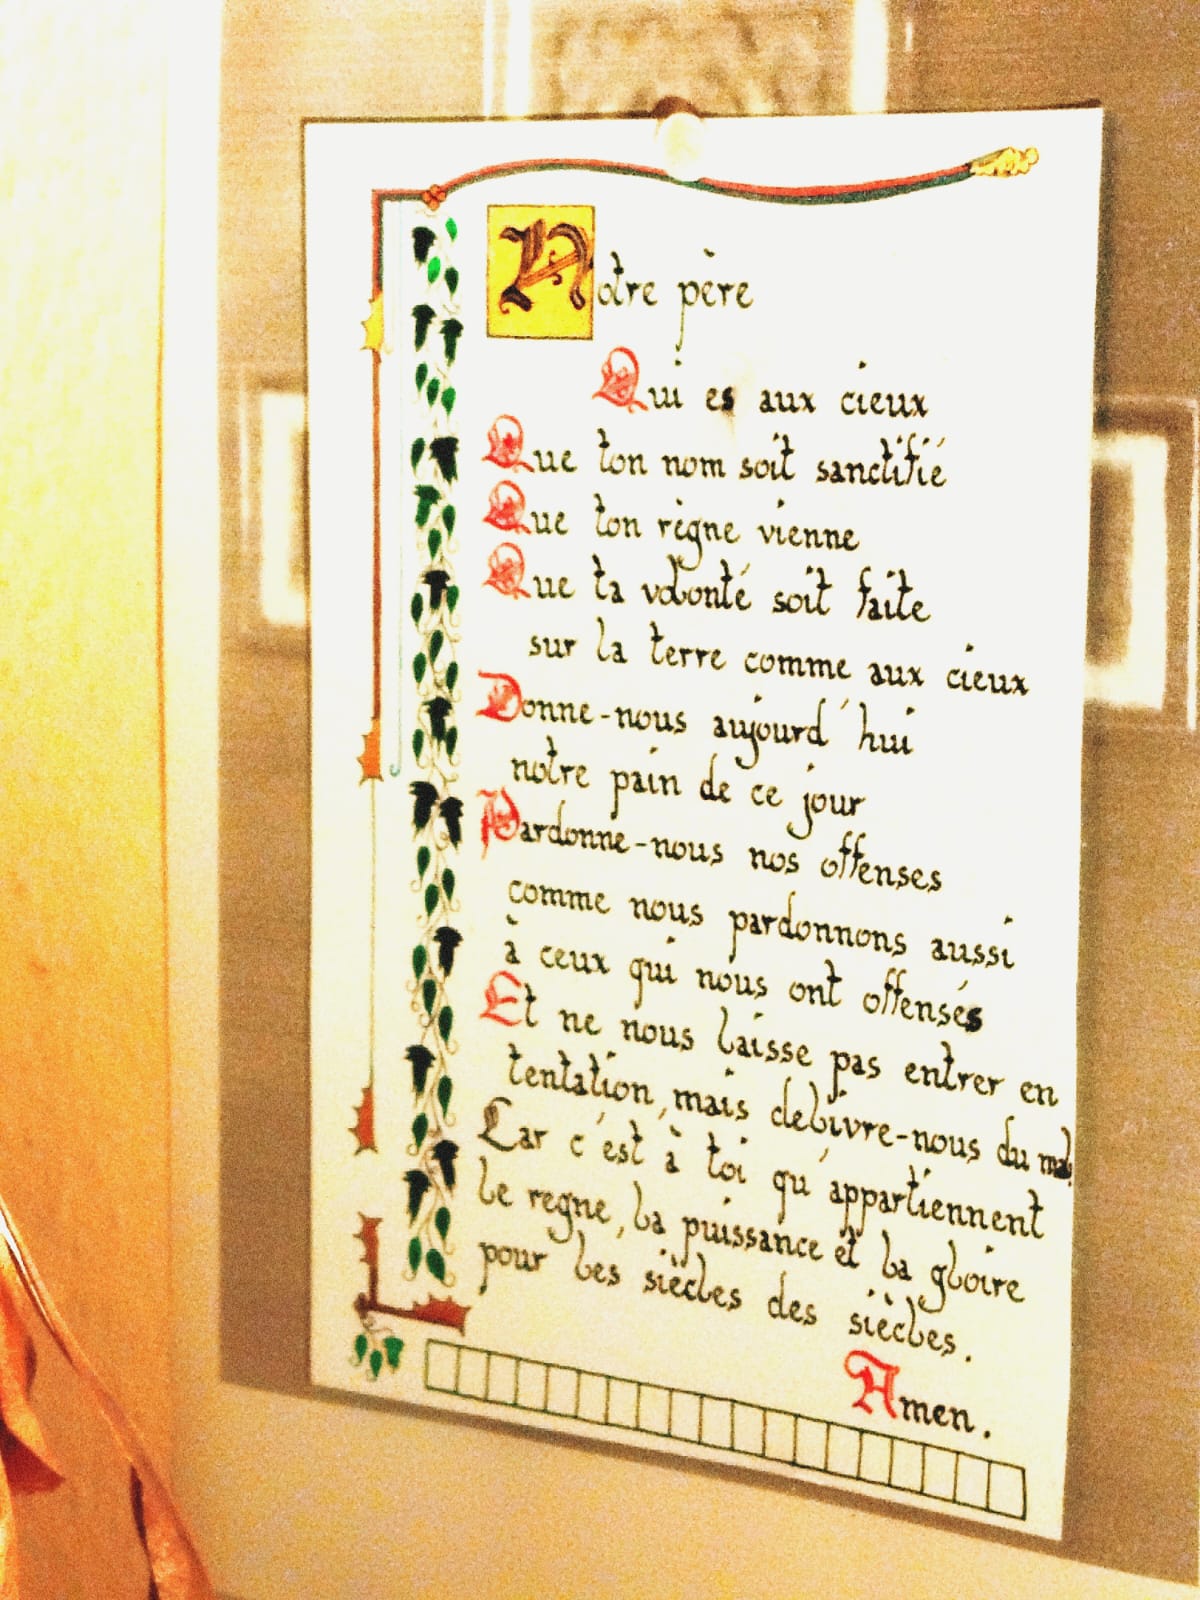 Notre père
Qui es aux cieux
Que ton nom soit sanctifié
Que ton règne vienne
Que ta volonté soit faite
sur la terre comme aux cieux
Donne-nous aujourd'hui
notre pain de ce jour
Pardonne-nous nos offenses
comme nous pardonnons aussi
à ceux qui nous ont offensés
Et ne nous laisse pas entrer en
tentation, mais delivre-nous du mal,
Car c'est à toi qu'appartiennent
le regne, la puissance et la gloire
pour les siècles des siècles.
Amen.